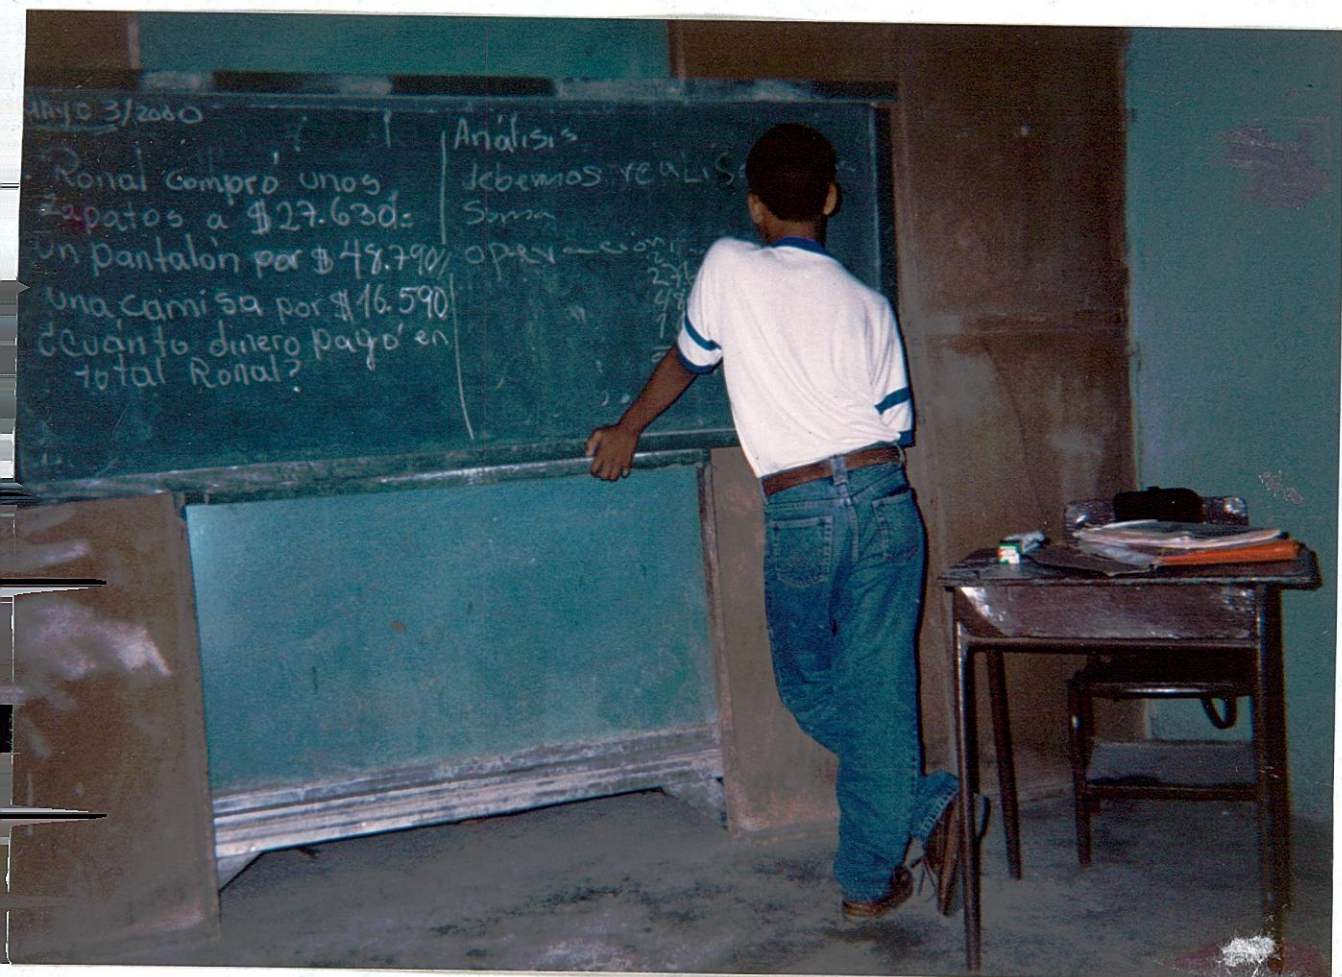 Mayo 3/2000
Ronal compró unos
zapatos a $27.630=
un pantalón por $48.790//
una camisa por $16.590
¿cuánto dinero pagó en
total Ronal?
Análisis
debemos
Suma